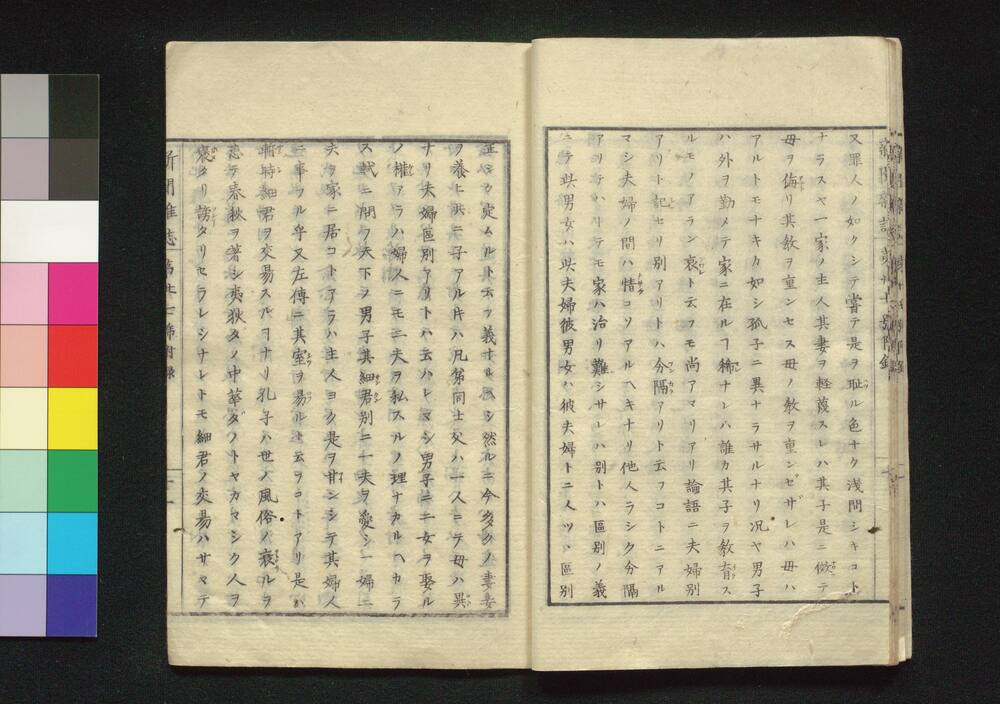 又罪人ノ如クシテ嘗テ是ヲ耻ル色ナク浅間シキコト
ナラスヤ一家ノ主人其妻ヲ軽蔑スレハ其子是ニ傚テ
母ヲ侮リ其教ヲ重ンセス母ノ教ヲ重ンゼザレハ母ハ
アルトモナキカ如シ孤子ニ異ナラサルナリ况ヤ男子
ハ外ヲ勤メテ家ニ在ルヿ稀ナレハ誰カ其子ヲ教育ス
ルモノアラン哀ト云フモ尚アマリアリ論語ニ夫婦別
アリト記セリ別アリトハ分隔アリト云フコトニアル
マシ夫婦ノ間ハ情コソアルヘキナリ他人ラシク分隔
アリテハトテモ家ハ治リ難シサレハ別トハ區別ノ義
ニテ此男女ハ此夫婦彼男女ハ彼夫婦ト二人ツヽ區別
正シク定ムルト云フ義ナルヘシ然ルニ今多クノ妻妾
ヲ養ヒ共ニ子アル片ハ兄弟同士父ハ一人ニテ母ハ異
ナリ夫婦區別アリトハ云ハレマシ男子ニ二女ヲ娶ル
ノ權アラハ婦人ニモ二夫ヲ私スルノ理ナカルヘカラ
ス試ニ問フ天下ヲ男子其細君別ニ一夫ヲ愛シ一婦二
夫ヲ家ニ居コトアラハ主人ヨク是ヲ甘ンシテ其婦人
ニ事フル乎又左傳ニ其室ヲ易ルト云フコトアリ是ハ
暫時細君ヲ交易スルヿナリ孔子ハ世ノ風俗ノ衰ルヲ
悲テ春秋ヲ著シ夷狄ダノ中華ダノトヤカマシク人ヲ
褒タリ謗タリセラレシナレトモ細君ノ交易ハサマテ
新聞雜誌 第十七號附錄